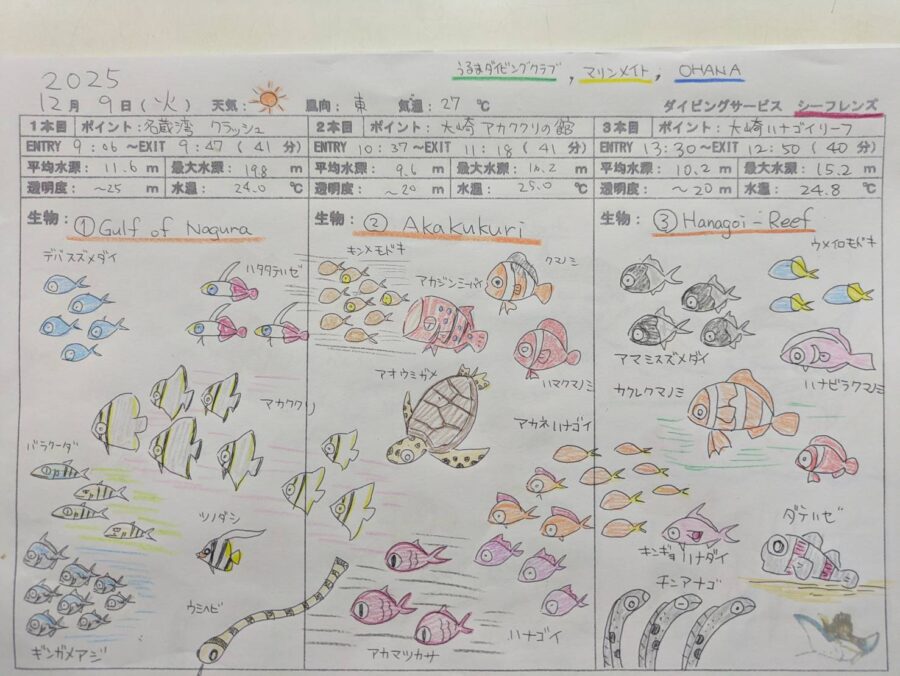 うるまダイビングクラブ, マリンメイト, OHANA
2025
12月 9日(火) 天気: 風向: 東 気温: 27 ℃ ダイビングサービス シーフレンズ
1本目 ポイント: 名蔵湾 クラッシュ
ENTRY 9:06 ~EXIT 9:47 (41 分)
平均水深: 11.6 m 最大水深: 19.8 m
透明度: ~25 m 水温: 24.0 ℃
生物: ① Gulf of Nagura
デバスズメダイ
ハタタテハゼ
アカククリ
バラクーダ
ツノダシ
ウミヘビ
ギンガメアジ
2本目 ポイント: 大崎 アカククリの館
ENTRY 10:37 ~EXIT 11:18 (41 分)
平均水深: 9.6 m 最大水深: 16.2 m
透明度: ~20 m 水温: 25.0 ℃
生物: ② Akakukuri
キンメモドキ
クマノミ
アカジンミーバイ
ハマクマノミ
アオウミガメ
アカネハナゴイ
ハナゴイ
アカマツカサ
3本目 ポイント: 大崎ハナゴイリーフ
ENTRY 13:30 ~EXIT 12:50 (40 分)
平均水深: 10.2 m 最大水深: 15.2 m
透明度: ~20 m 水温: 24.8 ℃
生物: ③ Hanagoi-Reef
ウメイロモドキ
アマミスズメダイ
ハナビラクマノミ
カクレクマノミ
ダテハゼ
キンギョハナダイ
チンアナゴ